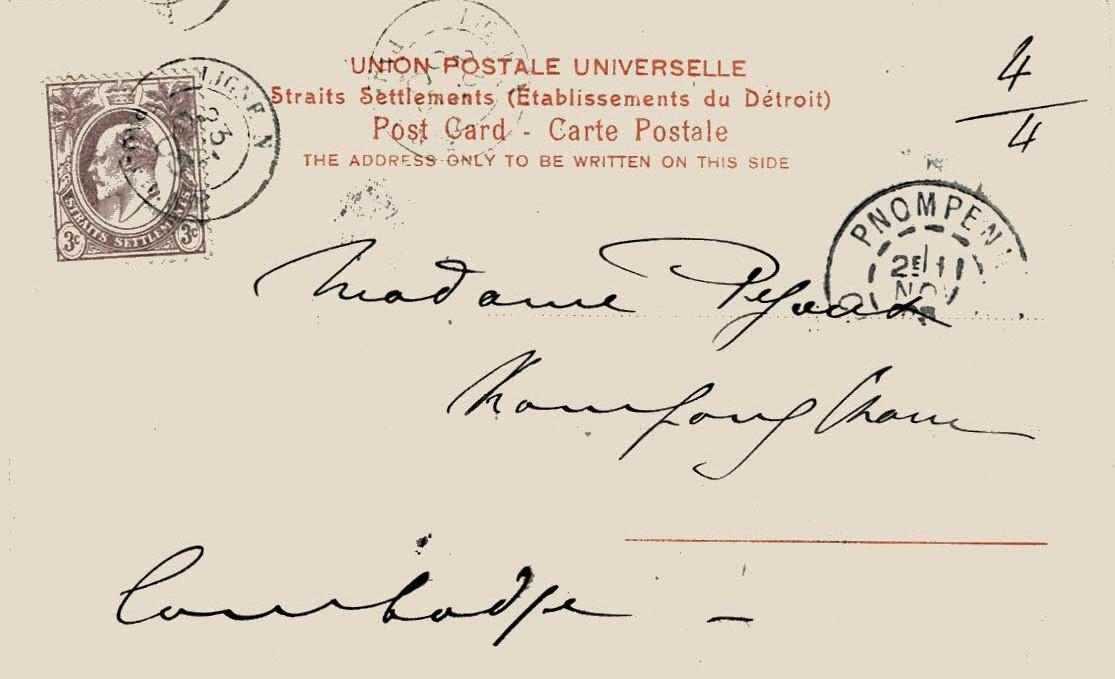 UNION POSTALE UNIVERSELLE
Straits Settlements (Établissements du Détroit)
Post Card - Carte Postale
THE ADDRESS ONLY TO BE WRITTEN ON THIS SIDE
4
4
LIGNE N
23
STRAITS SETTLEMENTS
3c 3c
PNOMPEN
2E
NOV
Madame
Kompong Cham
Cambodge -